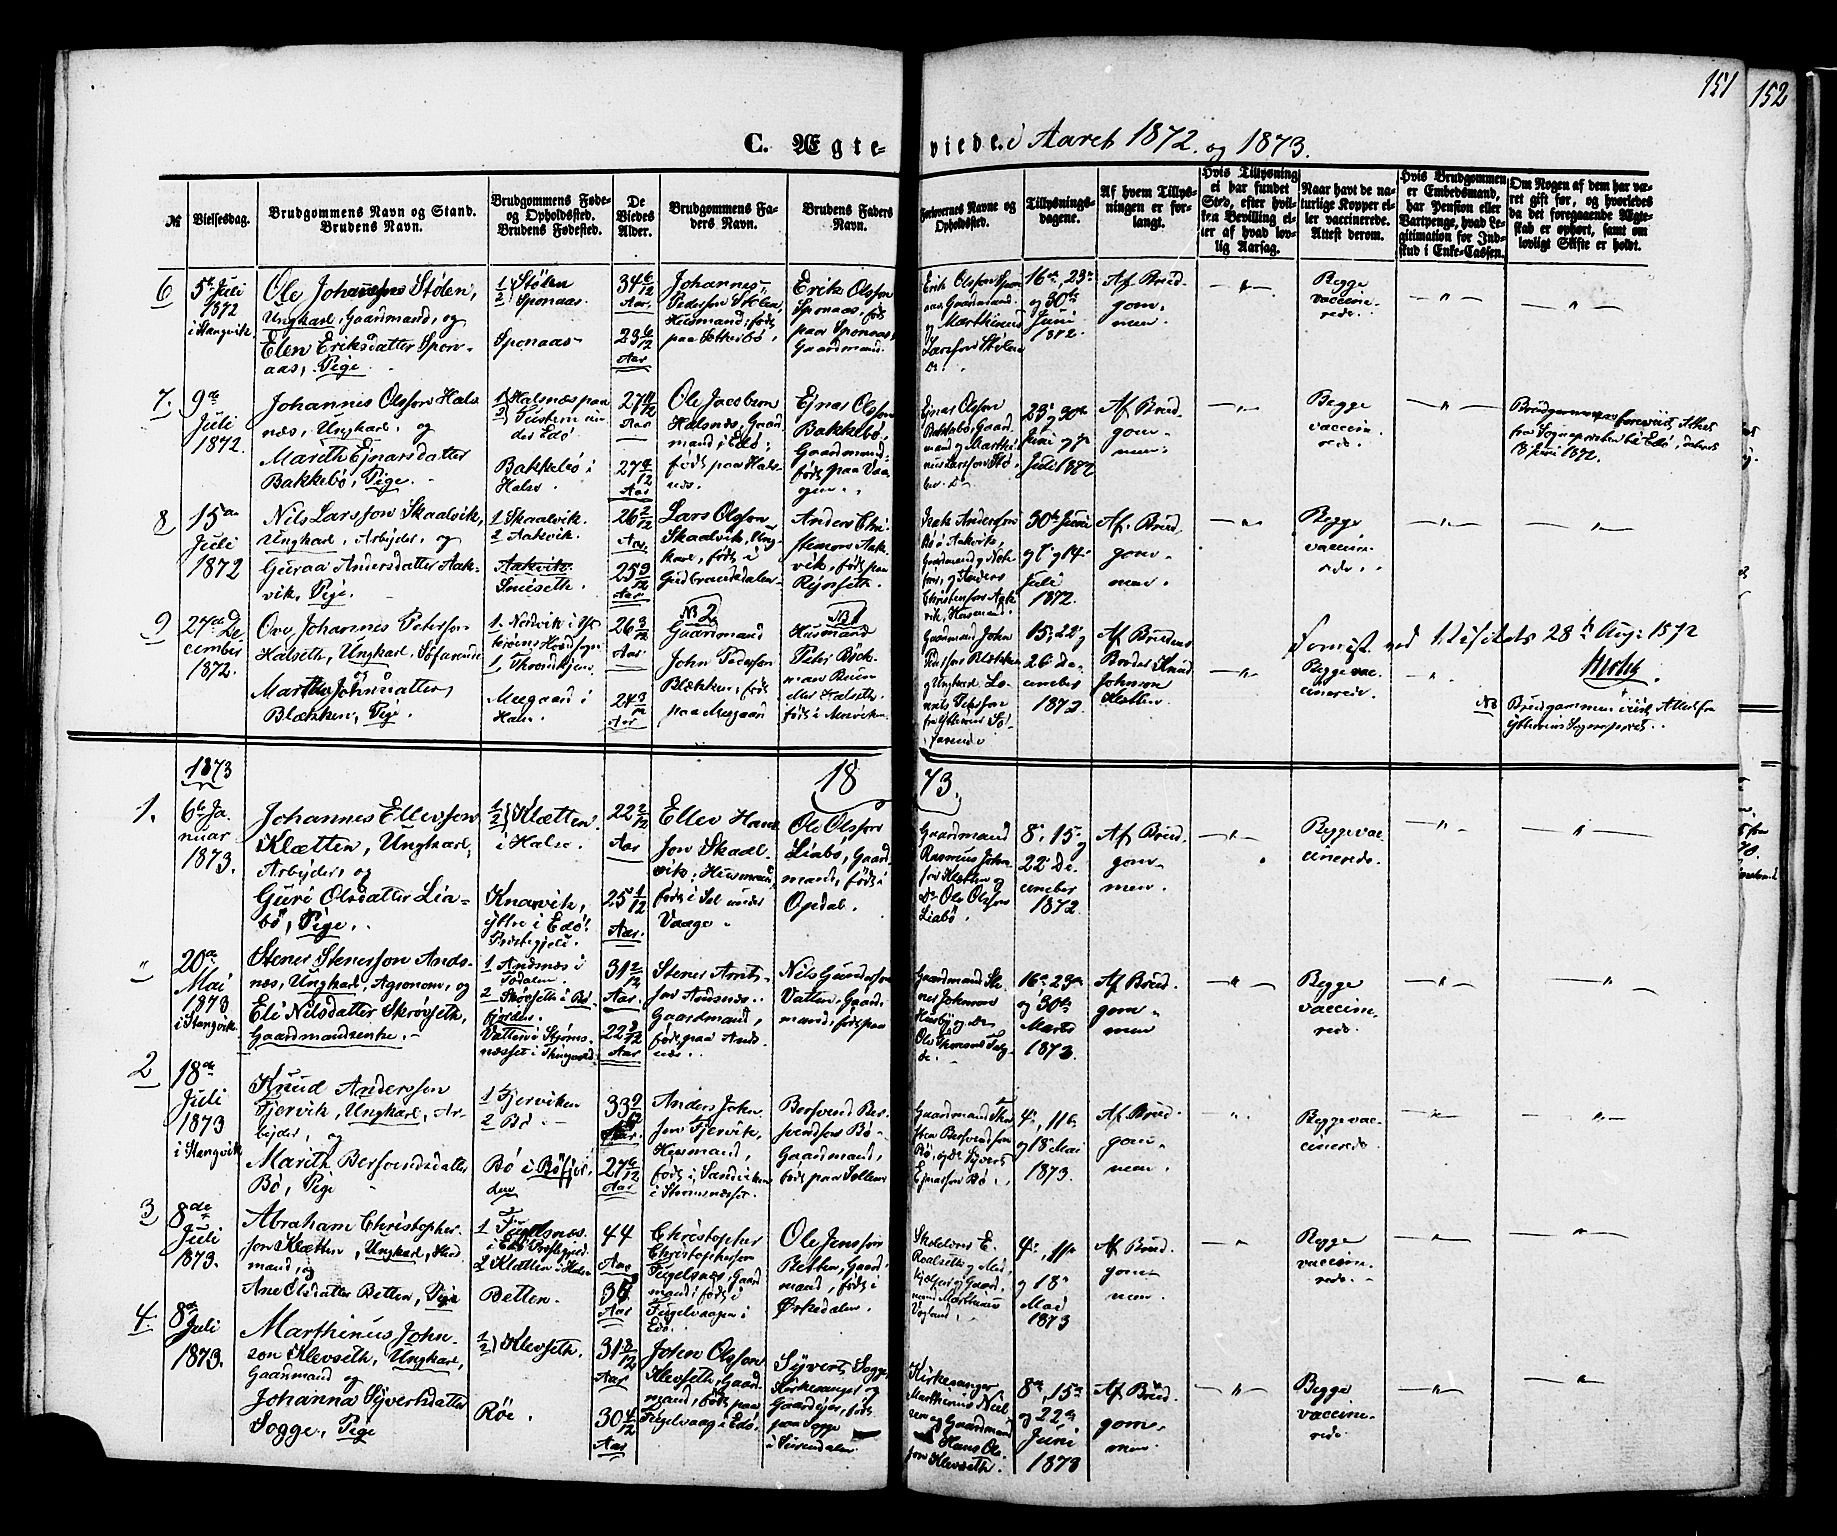 151
152
C. Ægteviede i Aaret 1872 og 1873.
№
Vielsesdag.
Brudgommens Navn og Stand.
Brudens Navn.
Brudgommens Føde-
og Opholdsted.
Brudens Fødested.
De
Viedes
Alder.
Brudgommens Fa-
ders Navn.
Brudens Faders
Navn.
Forlovernes Navne og
Opholdsted.
Tillysnings-
dagene.
Af hvem Tillys-
ningen er for-
langt.
Hvis Tillysning
ei har fundet
Sted, efter hvil-
ken Bevilling el-
ler af hvad lov-
lig Aarsag.
Naar havt de na-
turlige Kopper el-
ler vaccinerede.
Attest derom.
Hvis Brudgommen
er Embedsmand,
har Pension eller
Vartpenge, hvad Le-
gitimation for Ind-
skud i Enke-Cassen.
Om Nogen af dem har væ-
ret gift før, og hvorledes
da det foregaaende Ægte-
skab er ophørt, samt om
lovligt Skifte er holdt.
6
5te Juli
1872
i Stangvik
Ole Johannesen Stølen,
Ungkarl, Gaardmand, og
Elen Eriksdatter Spon-
aas, Pige.
1 2 Stølen
Sponaas
Sponaas
34 6/12
Aar
23 6/12
Aar
Johannes
Pederson Stølen,
Huusmand, født
paa
Erik Olsson
Sponaas, født
paa Sponaas,
Gaardmand.
Erik Olsson Spon-
aas, Gaardmand
og Marthinus
Larsson Stølen
16de, 23de
og 30te
Juni
1872.
Af Brud-
gom-
men.
- " -
Begge
vaccine-
rede.
- " -
- " -
7.
9de
Juli
1872.
Johannes Olsson Hals-
næs, Ungkarl, og
Marith Ejnarsdatter
Bakkebø, Pige.
1 2 Halsnæs paa
Tustern un-
der Edø
Bakkebø i
Halse.
Aar
Aar
Ole Jacobsen
Halsnæs, Gaard-
mand i Edø,
født paa Hals-
næs.
Ejnar Olsson
Bakkebø,
Gaardmand,
født paa Vaa-
gen.
Ejnar Olsson
Bakkebø, Gaard-
mand og Marthi-
nus Larsson Stø-
len
23de og 30te
Juni og 7de
Juli 1872
Af Brud-
gom-
men.
- " -
Begge
vaccine-
rede
- " -
Brudgommen foreviist Attest
fra Sognepræsten til Edø, dateret
Juni 1872.
8
15de
Juli
1872
Nils Larsson Skaalvik,
Ungkarl, Arbejder, og
Guraa Andersdatter Aak-
vik, Pige.
1 Skaalvik.
2 Aakvik.
Aakvik
Smiseth.
26 2/12
Aar
25 9/12
Aar
Lars Olsson
Skaalvik, Ung-
karl, født i
Gudbrandsdalen
Anders Chri-
stensen Aak-
vik, født paa
Rejnseth.
Andersson
Bø i Aakvik,
Gaardmand og
og Anders
Christensen Aak-
vik, Husmand
30te Juni
og 7de og 14de
Juli
1872.
Af Brud-
gom-
men.
- " -
Begge
vaccine-
rede.
- " -
- " -
9
27de De-
cember
1872.
Ove Johannes Peterson
Halseth, Ungkarl, Søfarende
og
Martha Johnsdatter
Blækken, Pige.
1. Nordvik i
1, Throndhjem
Megaard i
Halse.
26 3/12
Aar
24 3/12
Aar
NB 2
Gaardmand
John Pederson
Blækken, født
paa Megaard
NB 1
Husmand
Peter Bøck-
man
Halseth,
født i
Gaardmand John
Pederson Blækken
og Ungkarl
Peterson
Sø-
farende
15de, 22de og
26de De-
cember
1872
Af Brudens
Broder Knud
Johnson
Kletten
- " -
Begge vac-
cinerede.
- " -
ved Visitats 28de Aug: 1872
NB Brudgommen viist Attest fra
Sognepræst.
1873
1873.
1.
6te Ja-
nuar
1873.
Johannes Ellevson
Klætten, Ungkarl,
Arbejder, og
Guri Olsdatter Lia-
bø, Pige.
1 2 Klætten
i Halse.
Knarvik,
ytre i Edø
Præstegjeld.
22 2/12
Aar
25 1/12
Aar.
Ellev Han-
son Skaal-
vik, Husmand,
født i Sel under
Vaage
Ole Olsson
Liabø, Gaard-
mand, født i
Opdal.
Gaardmand
Rasmus John-
son Kletten og
do Ole Olsson
Liabø.
8de, 15de og
22de De-
cember
1872.
Af Brud-
gom-
men.
- " -
Begge vac-
cinerede.
- " -
- " -
"
20de
Mai
1873
i Stangvik
Stener Stenerson Ands-
næs, Ungkarl, Agronom, og
Eli Nilsdatter Skrøvseth,
Gaardmandsenke.
1 Andsnæs i
Todalen.
2 Skrøvseth i Bø-
fjorden.
Vatten i Stjørns-
31 2/12
Aar
22 3/12
Aar
Stener Arnt-
son Andsnæs.
Gaardmand,
født paa Ands-
næs.
Nils Gunderson
Vatten, Gaard-
mand, født paa
Gaardmand Ste-
ner Johnson
Husby og do
Ole
16de, 23de
og 30te
Marts
1873.
Af Brud-
gom-
men
- " -
Begge
vaccine-
rede.
- " -
- " -
2
18de
Juli
1873
i Stangvik
Knud Anderson
Fjervik, Ungkarl, Ar-
bejder, og
Marith Bersvendsdatter
Bø, Pige
1 Fjervikken
2 Bø.
Bø i Bøfjor-
den
33 9/12
Aar.
27
Aar
Anders John-
son Fjervik,
Husmand,
født i Sandviken
i Stromsnæset.
Bersvend Ber-
svendson Bø
Gaardmand,
født paa
Gaardmand
Bersvendson
Bø, og do Syvert
Ejnarson Bø
4de, 11te
og 18de Mai
1873.
Af Brud-
gom-
men.
- " -
Begge vac-
cinerede.
- " -
- " -
3
8de
Juli
1873.
Abraham Christopher-
son Klætten, Ungkarl, Hus-
mand, og
Ane Olsdatter Betten, Pige
1 Fugelsnæs
i Edø Præstegjeld
2 Klætten i Halse
Betten.
44
Aar
Aar
Christopher
Christopherson
Fugelsnæs, Gaard-
mand, født i
Fugelvaagen i
Edø.
Ole Jensson
Betten, Gaard-
mand, født i
Ørkedalen.
Skolelærer E.
Roalseth og
Gaard-
mand Marthinus
4de, 11te
og 18de
Mai
1873
Af Brud-
gom-
men.
- " -
Begge
vaccine-
rede.
- " -
- " -
4.
8de
Juli
1873.
Marthinus John-
son Klevseth, Ungkarl,
Gaardmand og
Johanna Syvertsdatter
Sogge, Pige
1 2 Klevseth.
Røe.
31 3/12
Aar
30 4/12
Aar
John Olsson
Klevseth, Gaard-
mand, født paa
Fugelvaag i Edø.
Syvert Sogge,
Kirkesanger og
Gaardejer, født
paa Sogge
i Surendalen
Kirkesanger
Marthinus Niel-
sen og Gaardmand
Hans Ole-
son Klevseth.
8de, 15de
og 22de
Juni
1873
Af Brud-
gom-
men.
- " -
Begge
vaccine-
rede
- " -
- " -